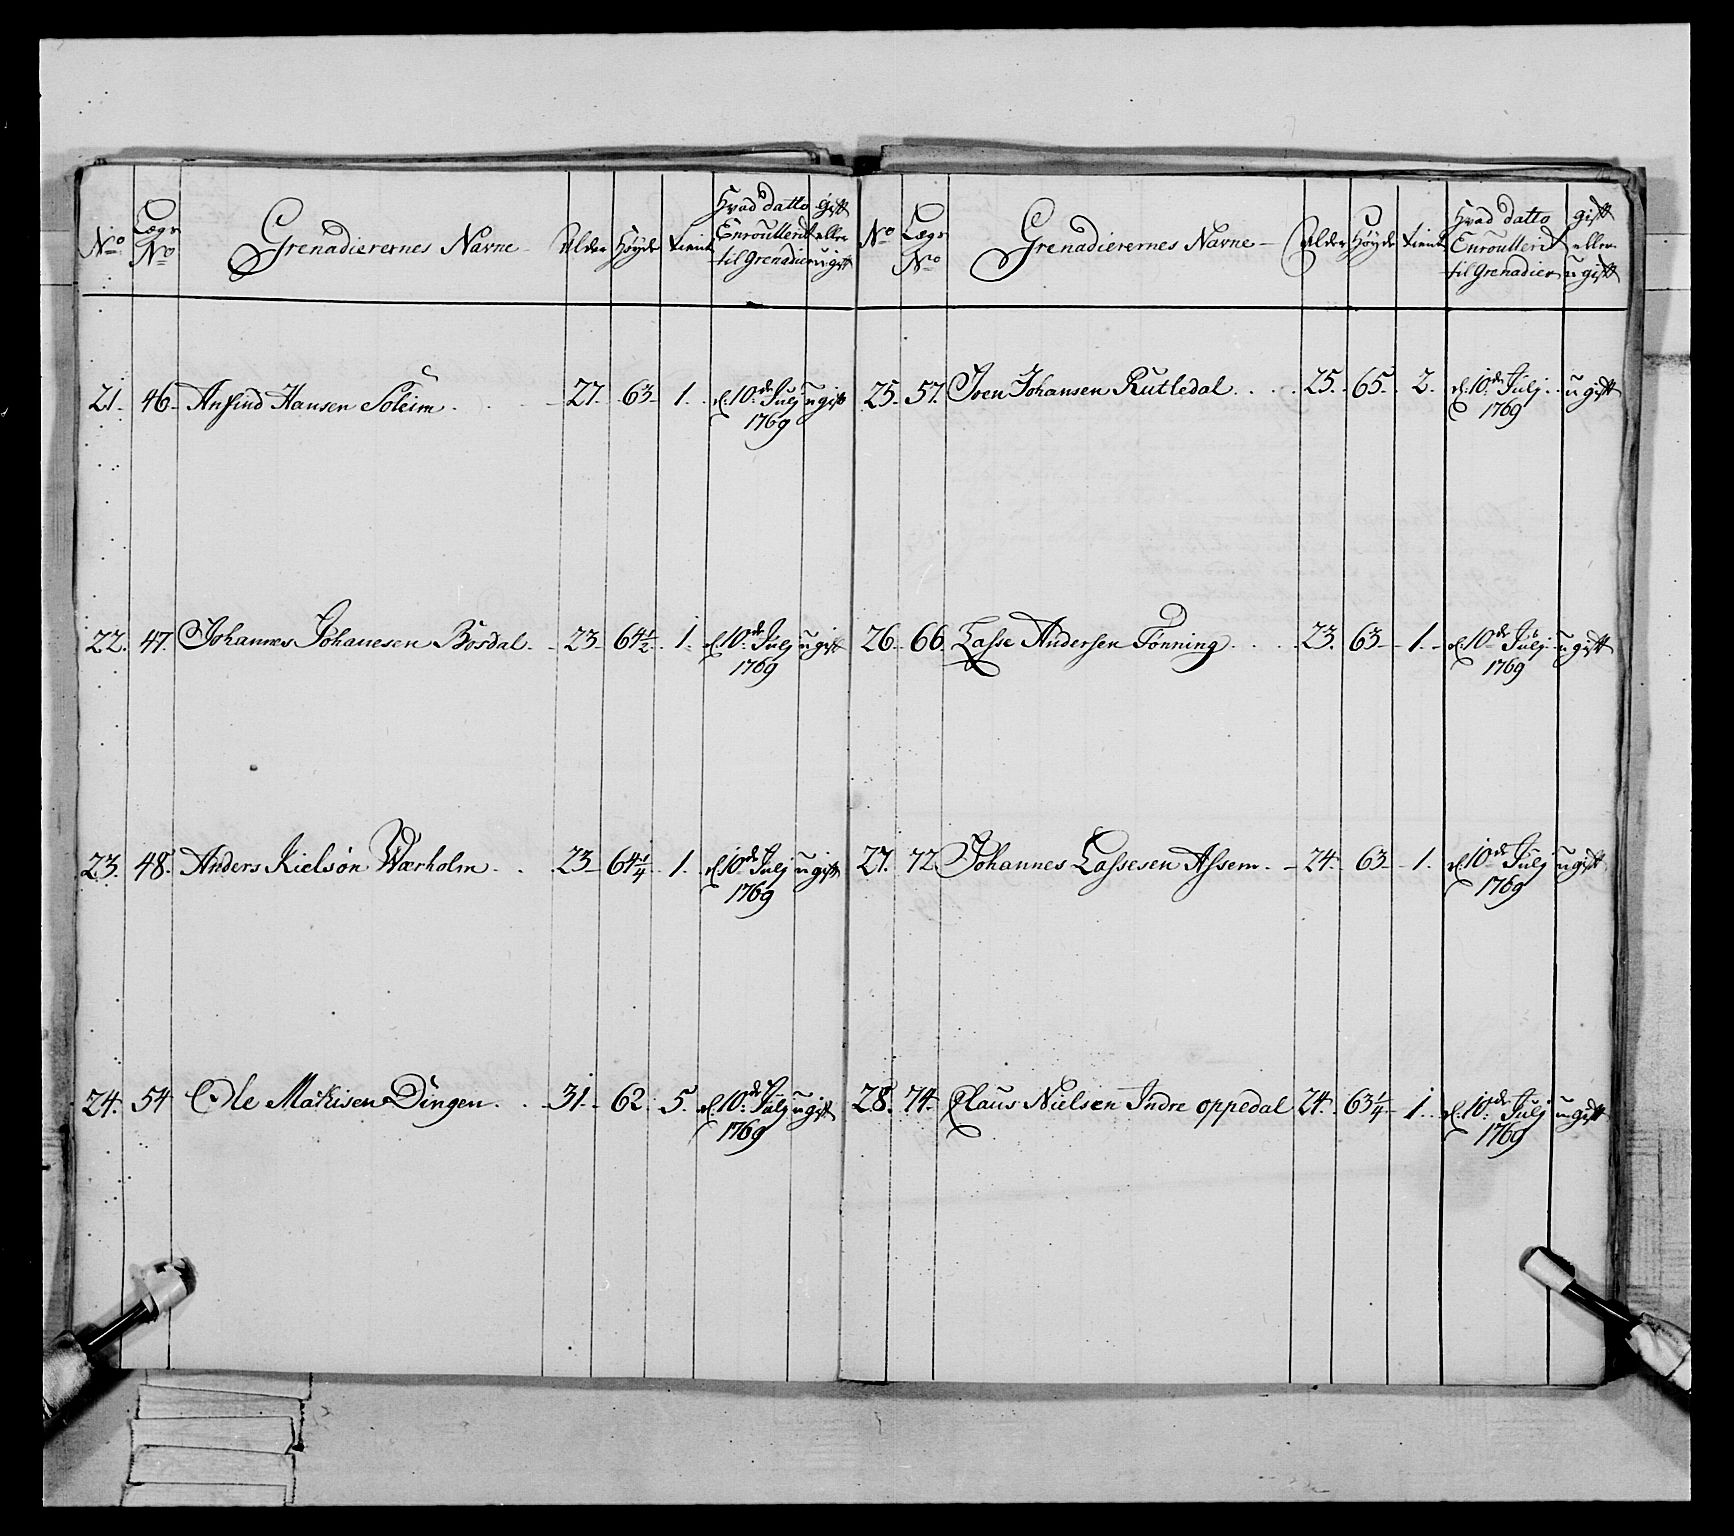 No Lægs No Grenadierernes Navne Alder Høyde tient Hvad datto Enroullerit til Grenadier gift eller ugift
21. 46. Anfind Hansen Soleim. 27. 63. 1. d. 10de Julj 1769 ugift
22. 47. Johannes Johanesen Bosdal. 23. 64 1/2. 1. d. 10de Julj 1769 ugift
23. 48. Anders Nielsøn Wærholm. 23. 64 1/4. 1. d. 10de Julj 1769 ugift
24. 54 Ole Matisen Dingen. 31. 62. 5. d. 10de Julj 1769 ugift
No Lægs No Grenadierernes Navne Alder Høyde tient Hvad datto Enroullerit til Grenadier gift eller ugift
25. 57. Iven Johansen Rutledal. 25. 65. 2. d. 10de Julj. 1769 ugift
26. 66. Lasse Andersen Tønning. 23. 63. 1. d. 10de Julj. 1769 ugift
27. 72 Johannes Lassesen Assem. 24. 63. 1. d. 10de Julj 1769 ugift
28. 74. Claus Nielsen Indre oppedal 24. 63 1/4. 1. d. 10de Julj 1769 ugift